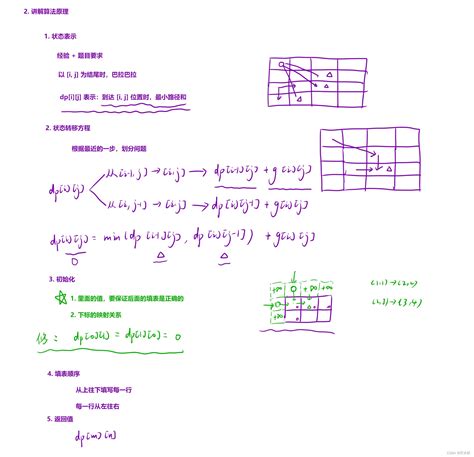 2. 讲解算法原理
1. 状态表示
经验 + 题目要求
以 [i, j] 为结尾时，巴拉巴拉
dp[i][j] 表示：到达 [i, j] 位置时，最小路径和
2. 状态转移方程
根据最近的一步，划分问题
dp[i][j]
从[i-1, j] → [i, j] → dp[i-1][j] + g[i][j]
从[i, j-1] → [i, j] → dp[i][j-1] + g[i][j]
dp[i][j] = min(dp[i-1][j], dp[i][j-1]) + g[i][j]
3. 初始化
1. 里面的值，要保证后面的填表是正确的
2. 下标的映射关系
+∞ 0 +∞ +∞
0
+∞
dp[0][1] = dp[1][0] = 0
4. 填表顺序
从上往下填写每一行
每一行从左往右
5. 返回值
dp[m][n]